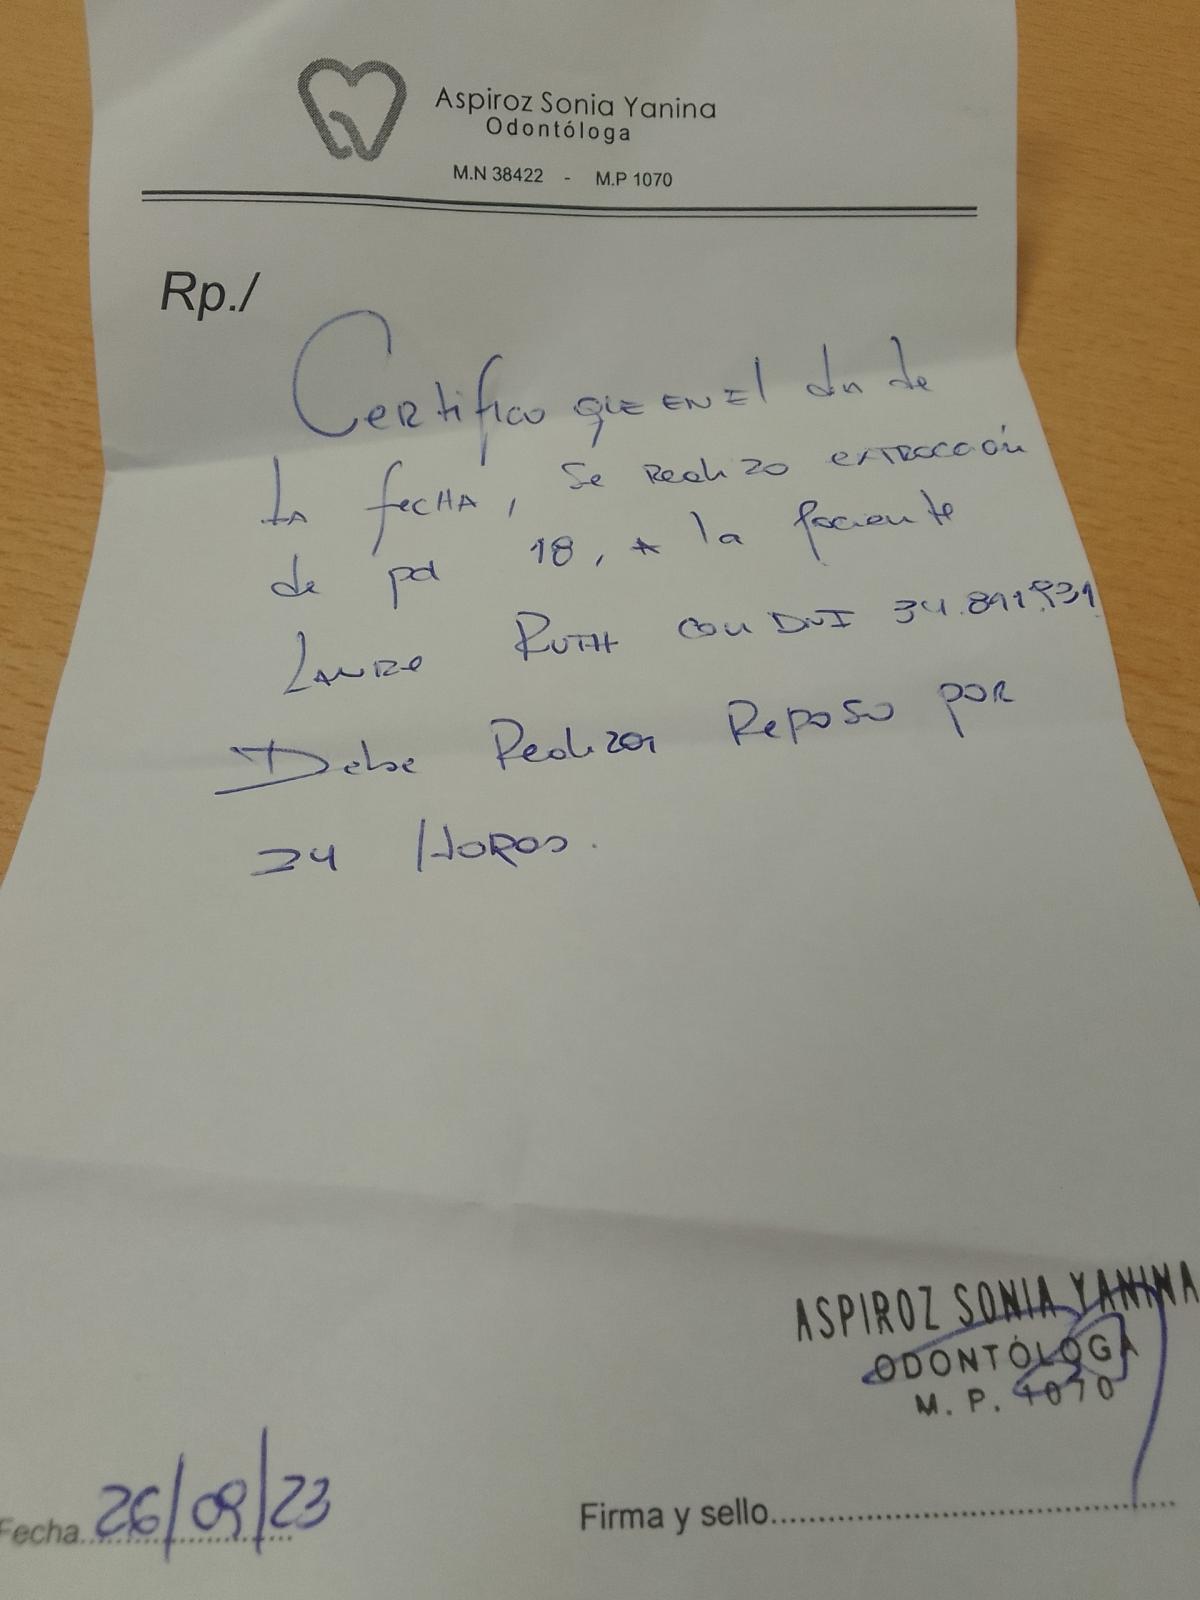 Aspiroz Sonia Yanina
Odontóloga
M.N 38422 - M.P 1070
Rp./
Certifico que en el día de
la fecha, se realizo extracción
de pd 18, a la paciente
Ruth con DNI 34.891.931
Debe Realizar Reposo por
24 Horas.
ASPIROZ SONIA YANINA
ODONTÓLOGA
M. P. 1070
Fecha 26/09/23
Firma y sello